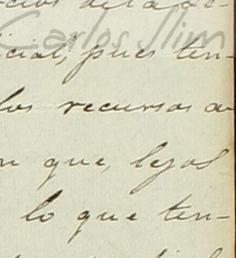 Carlos Slim
icial, pues ten-
los recursos a
que, lejos
lo que ten-